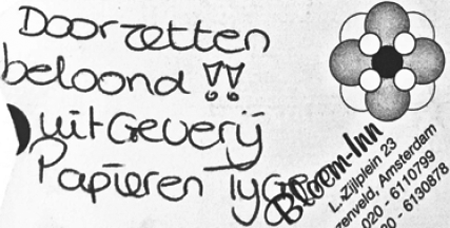 Doorzetten
beloond !!
uitGeverij
Papieren Tyger
Bloem-Inn
L. Zijlplein 23
zenveld, Amsterdam
020 - 6110799
20 - 6130878